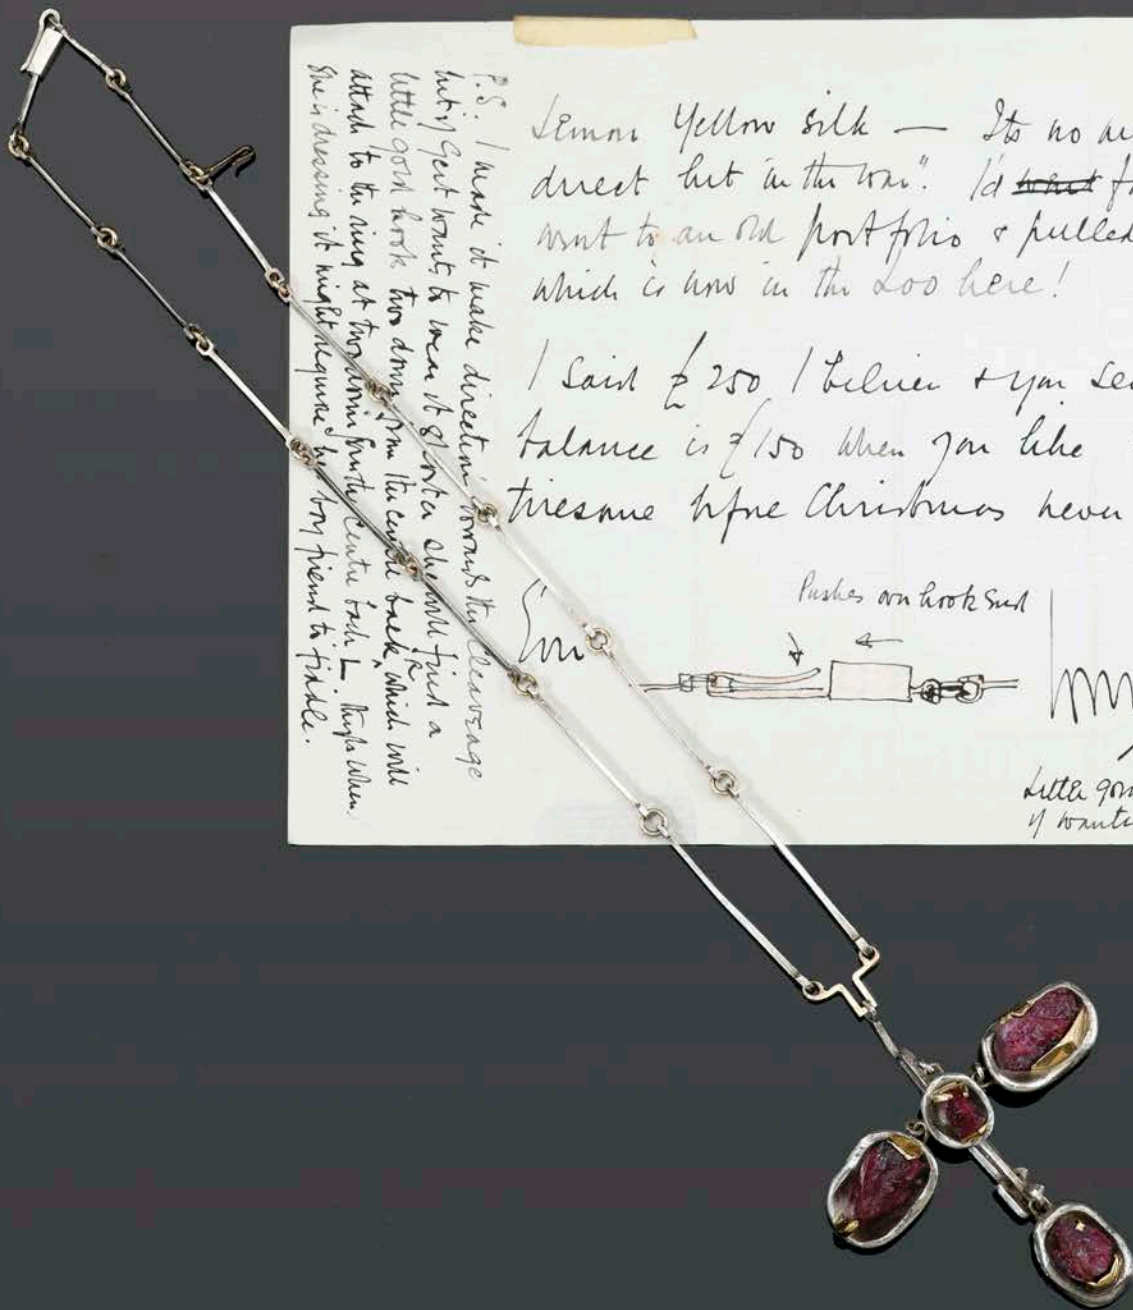 Lemon Yellow silk — Its no
direct hit in the war". I'd want
went to an old portfolio & pulled
which is now in the Loo here!
I said £250 I believe & you
balance is £150 when you like
tiresome before Christmas never
Pushes over hook end
Little
if
P.S. I made it make direction towards the cleavage
but if Gert wants to wear it shorter she will find a
little gold hook two down from the centre back, which will
attach to the ring at two down from the centre back Perhaps when
she is dressing it might require her boy friend to fiddle.